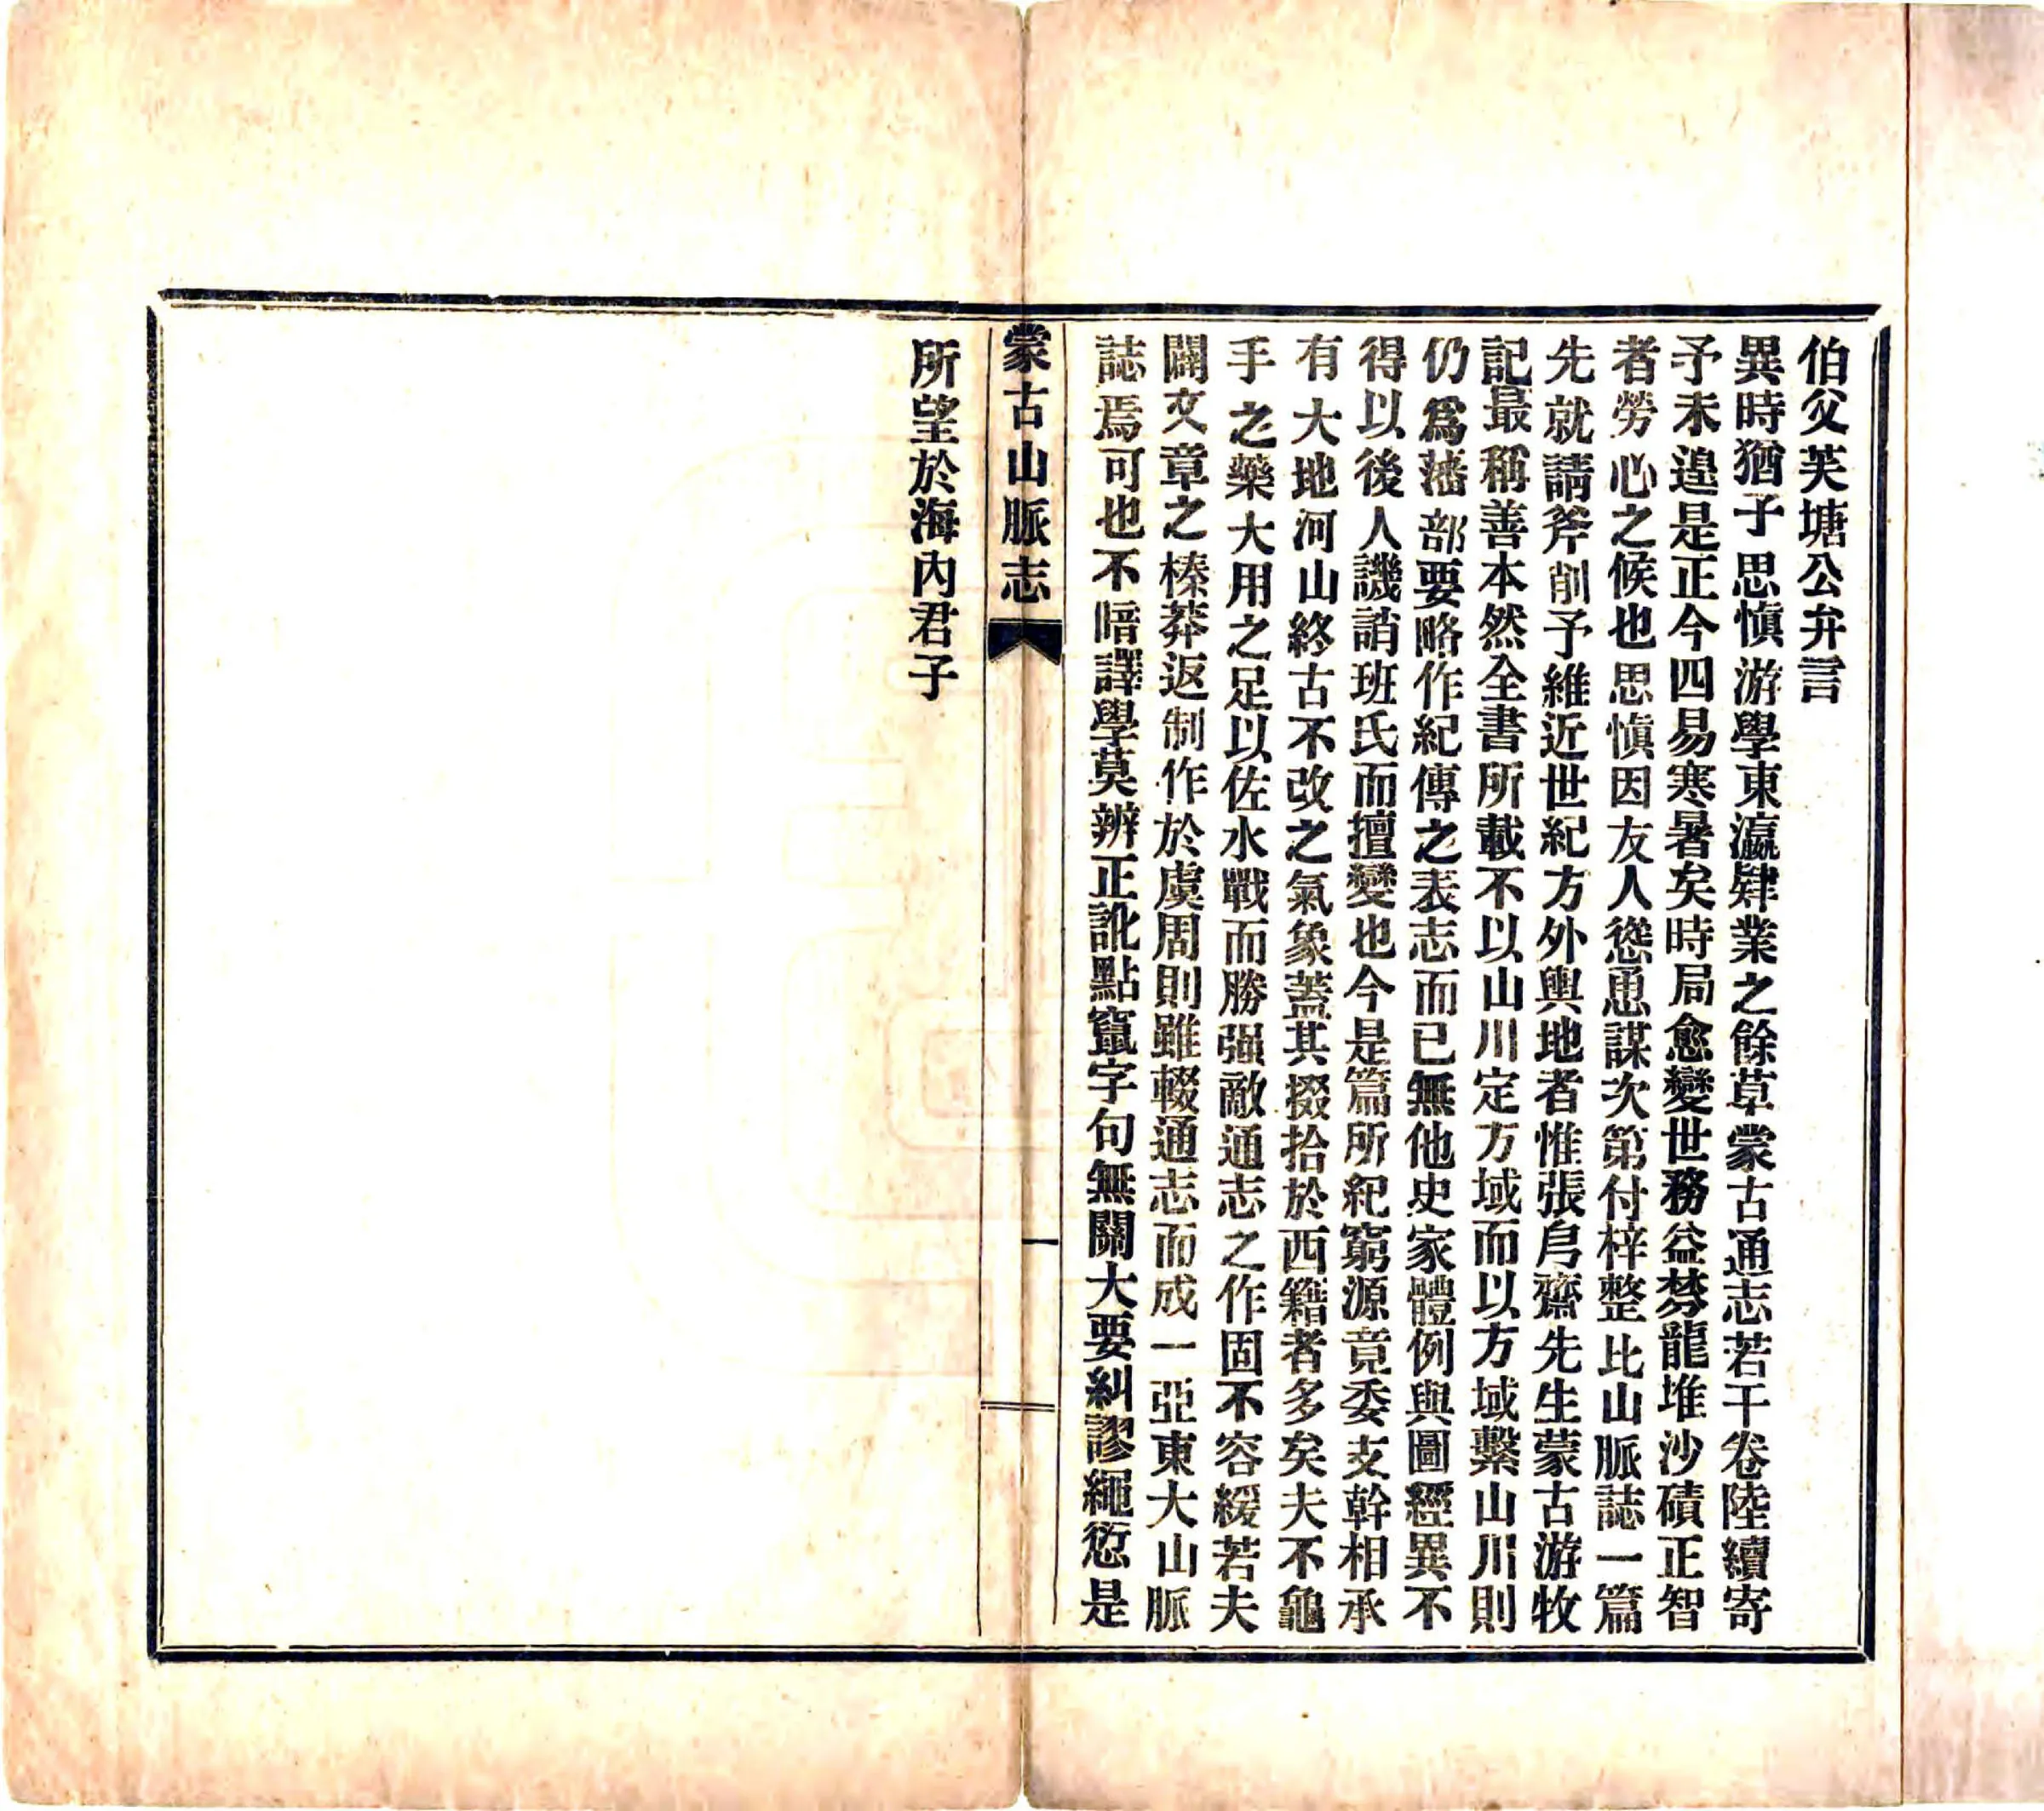 伯父芙塘公弁言
異時猶子思慎游學東瀛肄業之餘草蒙古通志若干卷陸續寄
予未遑是正今四易寒暑矣時局愈變世務益棼龍堆沙磧正智
者勞心之候也思慎因友人慫恿謀次第付梓整比山脈誌一篇
先就請斧削予維近世紀方外輿地者惟張㐆齋先生蒙古游牧
記最稱善本然全書所載不以山川定方域而以方域繫山川則
仍爲藩部要略作紀傳之表志而已無他史家體例與圖經異不
得以後人譏誚班氏而擅變也今是篇所紀窮源竟委支幹相承
有大地河山終古不改之氣象蓋其掇拾於西籍者多矣夫不龜
手之藥大用之足以佐水戰而勝强敵通志之作固不容緩若夫
闢文章之榛莽返制作於虞周則雖輟通志而成一亞東大山脈
誌焉可也不暗譯學莫辨正訛點竄字句無關大要糾謬繩愆是
蒙古山脈志
一
所望於海內君子